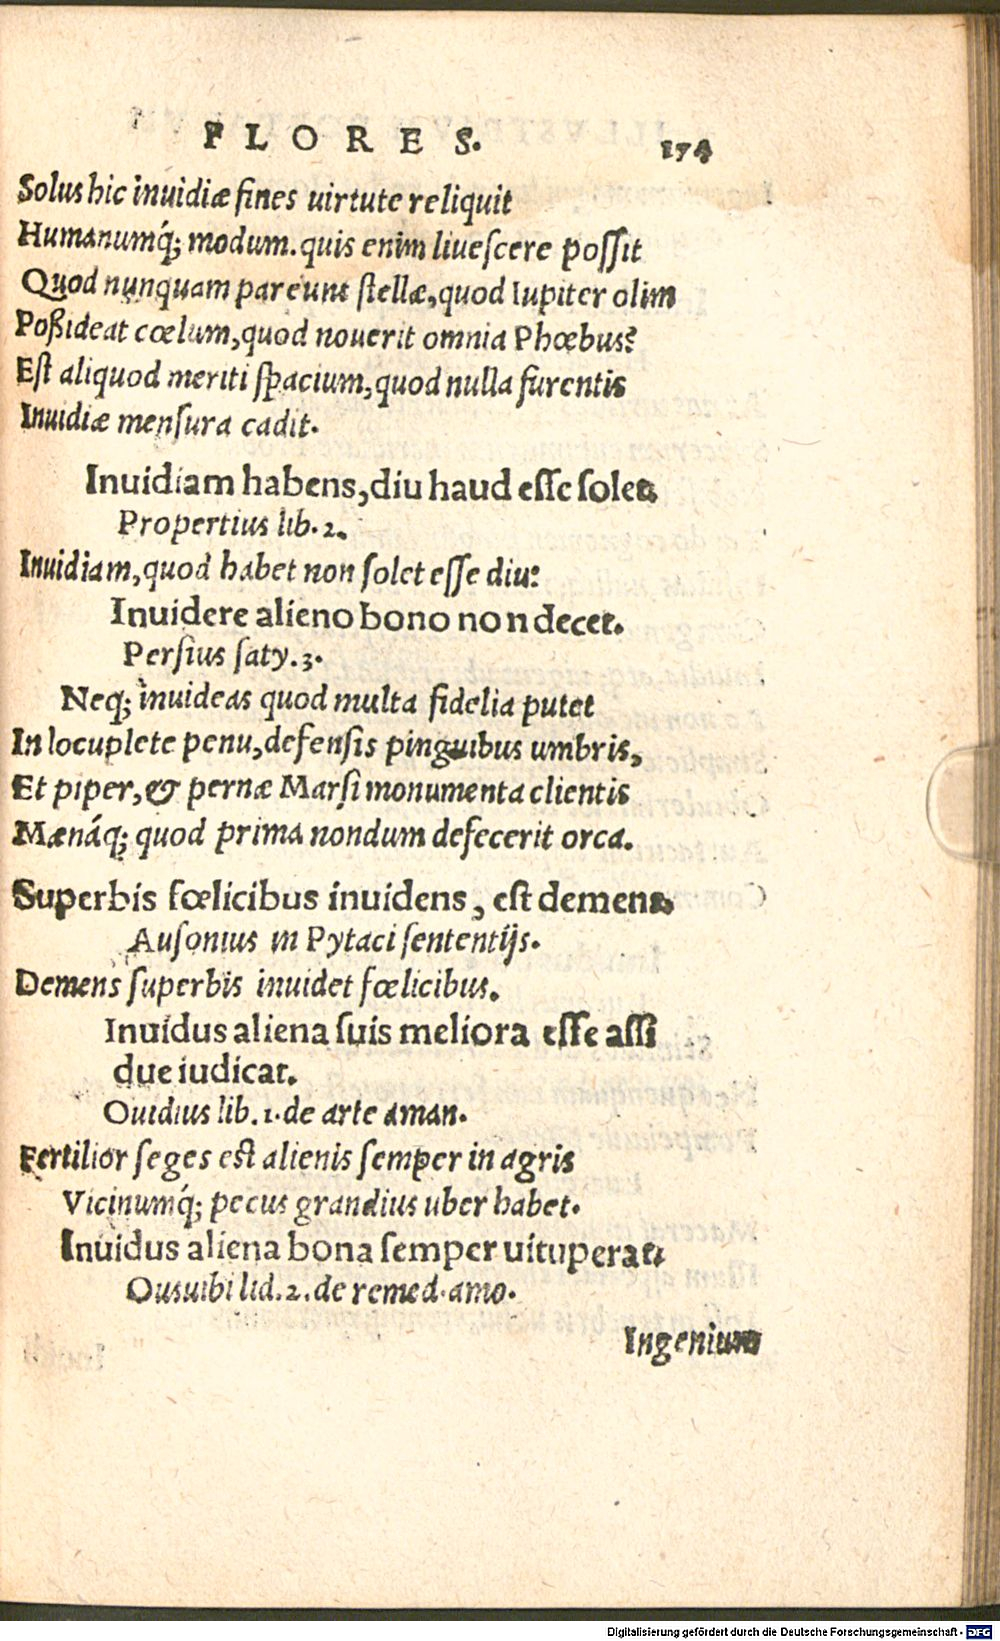 FLORES. 174
Solus hic inuidiæ fines virtute reliquit
Humanumq́; modum. quis enim liuescere possit
Quod nunquam pereunt stellæ, quod Iupiter olim
Poßideat cœlum, quod nouerit omnia Phœbus?
Est aliquod meriti spacium, quod nulla furentis
Inuidiæ mensura cadit.
Inuidiam habens, diu haud esse solet.
Propertius lib. 2.
Inuidiam, quod habet non solet esse diu:
Inuidere alieno bono non decet.
Persius saty. 3.
Neq; inuideas quod multa fidelia putet
In locuplete penu, defensis pinguibus umbris,
Et piper, & pernæ Marsi monumenta clientis
Mænáq; quod prima nondum defecerit orca.
Superbis fœlicibus inuidens, est demens.
Ausonius in Pytaci sententijs.
Demens superbis inuidet fœlicibus.
Inuidus aliena suis meliora esse assi
due iudicat.
Ouidius lib. 1. de arte aman.
Fertilior seges est alienis semper in agris
Vicinumq́; pecus grandius uber habet.
Inuidus aliena bona semper uituperat.
Ousuibi lid. 2. de remed. amo.
Ingenium
Digitalisierung gefördert durch die Deutsche Forschungsgemeinschaft - DFG